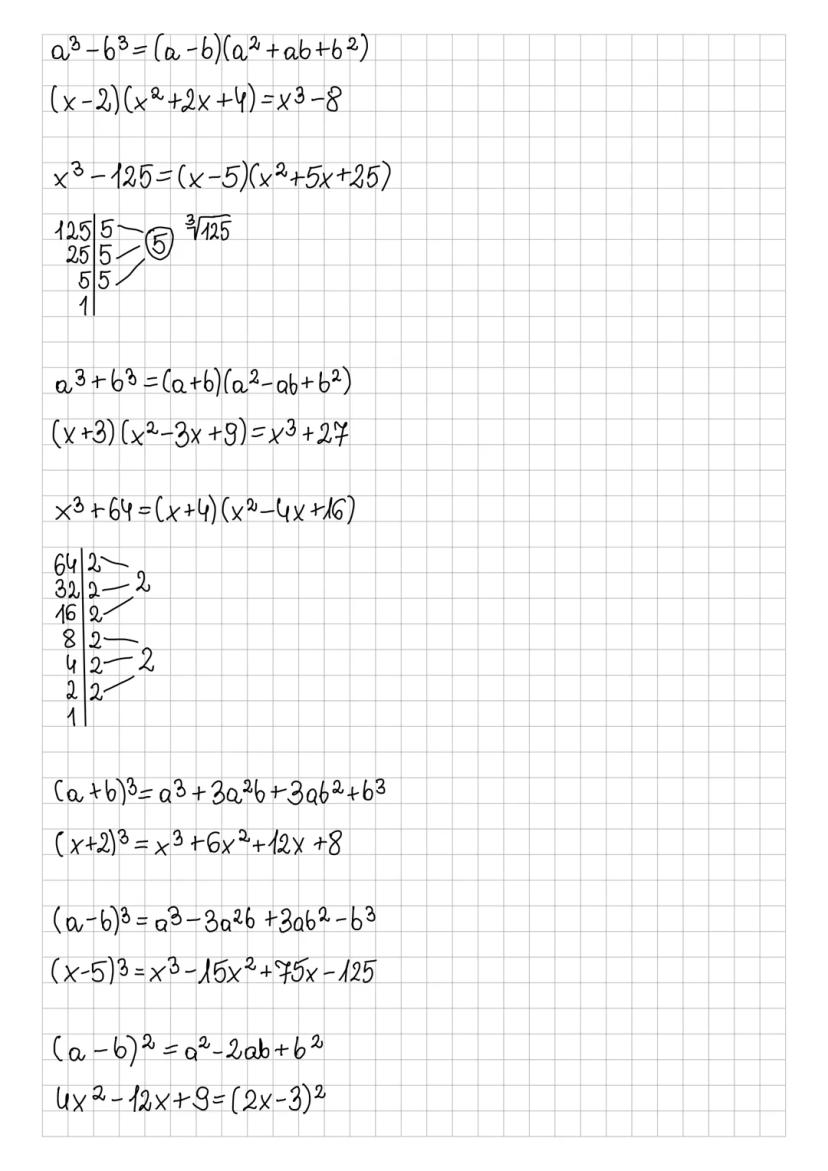 a³-b³=(a-b)(a²+ab+b²)
(x-2)(x²+2x+4)=x³-8
x³-125=(x-5)(x²+5x+25)
125|5 5 ∛125
25|5
5|5
1|
a³+b³=(a+b)(a²-ab+b²)
(x+3)(x²-3x+9)=x³+27
x³+64=(x+4)(x²-4x+16)
64|2
32|2 2
16|2
8|2
4|2 2
2|2
1|
(a+b)³=a³+3a²b+3ab²+b³
(x+2)³=x³+6x²+12x+8
(a-b)³=a³-3a²b+3ab²-b³
(x-5)³=x³-15x²+75x-125
(a-b)²=a²-2ab+b²
4x²-12x+9=(2x-3)²